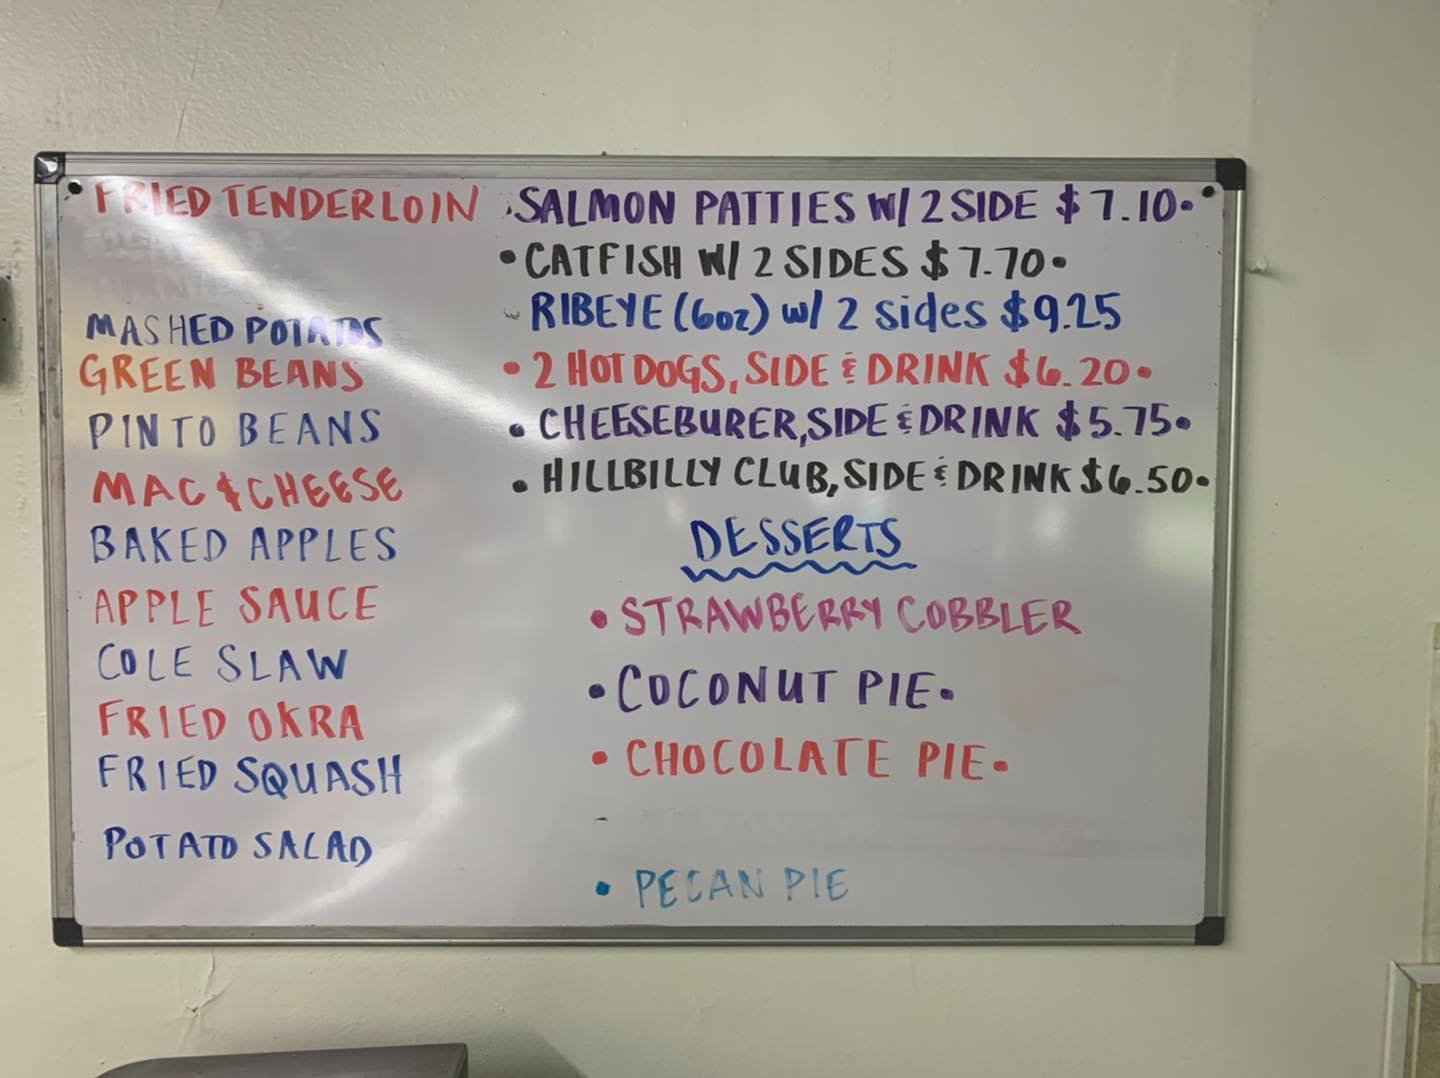 FRIED TENDERLOIN
MASHED POTATOS
GREEN BEANS
PINTO BEANS
MAC & CHEESE
BAKED APPLES
APPLE SAUCE
COLE SLAW
FRIED OKRA
FRIED SQUASH
POTATO SALAD
• SALMON PATTIES W/ 2 SIDE $7.10•
• CATFISH W/ 2 SIDES $7.70•
RIBEYE (6oz) w/ 2 sides $9.25
• 2 HOT DOGS, SIDE & DRINK $6.20•
• CHEESEBURER, SIDE & DRINK $5.75•
• HILLBILLY CLUB, SIDE & DRINK $6.50•
DESSERTS
• STRAWBERRY COBBLER
• COCONUT PIE•
• CHOCOLATE PIE•
• PECAN PIE